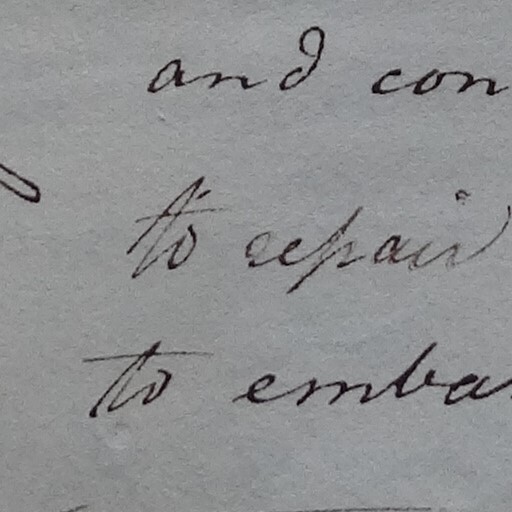 and con
to repair
to emba